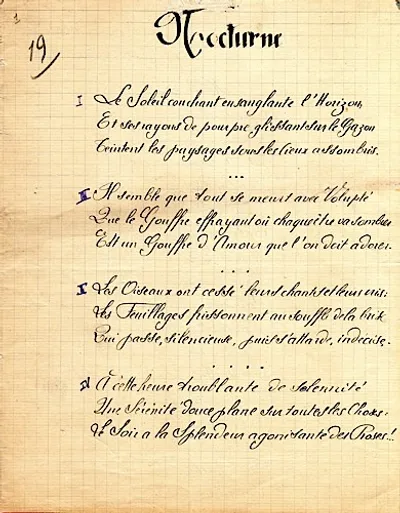 1
19
Nocturne
I Le Soleil couchant ensanglante l'Horizon,
Et ses rayons de pourpre, glissant sur le Gazon
Teintent les paysages sous les cieux assombris.
...
II Il semble que tout se meurt avec Volupté
Que le Gouffre effrayant où chaque être va sombrer
Est un Gouffre d'Amour que l'on doit adorer.
....
I Les Oiseaux ont cessé leurs chants et leurs cris:
Les Feuillages frissonnent au souffle de la
Qui passe, silencieuse, puis s'attarde, indécise.
.....
IV A cette heure troublante de solennité
Une Sérénité douce plane sur toutes les Choses:
Le Soir a la Splendeur agonisante des Roses!..